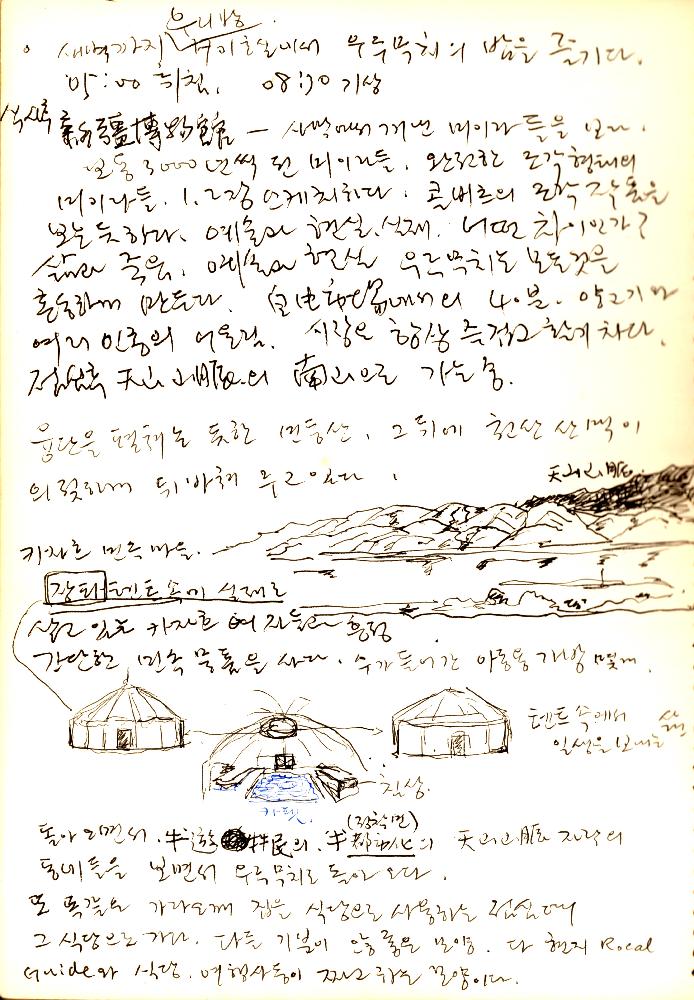 새벽까지 호텔에서 우루묵치의 밤을 즐기다.
05:00 취침, 08:30 기상
新疆博物館 - 사막에서 캐낸 미이라들을 보다.
보통 3000년씩 된 미이라들. 완전한 조각형태의
미이라들. 1,2장 스케치하다. 콜비츠의 조각 작품을
보는 듯하다. 예술과 현실.실재. 어떤 차이인가?
삶과 죽음, 예술과 현실 우루묵치는 모든것을
혼동하게 만든다. 自由市場에서의 양고기와
여러 인종의 어울림. 시장은 항상 즐겁고 활기차다.
점심후 天山山脈의 南山으로 가는 중.
융단을 펼쳐논 듯한 민둥산, 그 뒤에 천산산맥이
의젓하게 뒤받쳐 주고 있다.
天山山脈.
카자흐 민속마을.
장화텐트 속에 실제로
살고 있는 카자흐 여자들과 흥정
간단한 민속 물품을 사다. 수가 들어간 아동용 가방 몇개.
텐트 속에서
일생을 보내는 삶
침상.
카펫
돌아오면서. 半遊牧民의. 半都市化의 天山山脈 자락의
(정착민)
동네들을 보면서 우루묵치로 돌아오다.
또 똑같은 가라오께 집을 식당으로 사용하는 점심때
그 식당으로 가다. 다들 기분이 안좋은 모양. 다 현지 Rocal
Guide와 식당. 여행사들이 짜고 하는 모양이다.